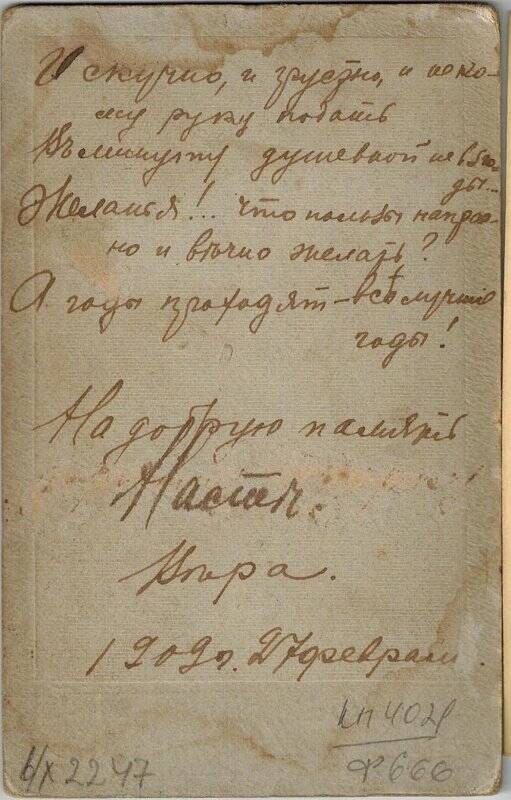 И скучно, и грустно, и неко-
му руку подать
Въ минуту душевной невзго-
ды...
Желанья!.. что пользы напрас-
но и вѣчно желать?
А годы проходят – всѣ лучшіе
годы!
На добрую память
Насти.
Вѣра.
1909 г. 27 февраля.
кп 4029
в/х 2247
ф 666